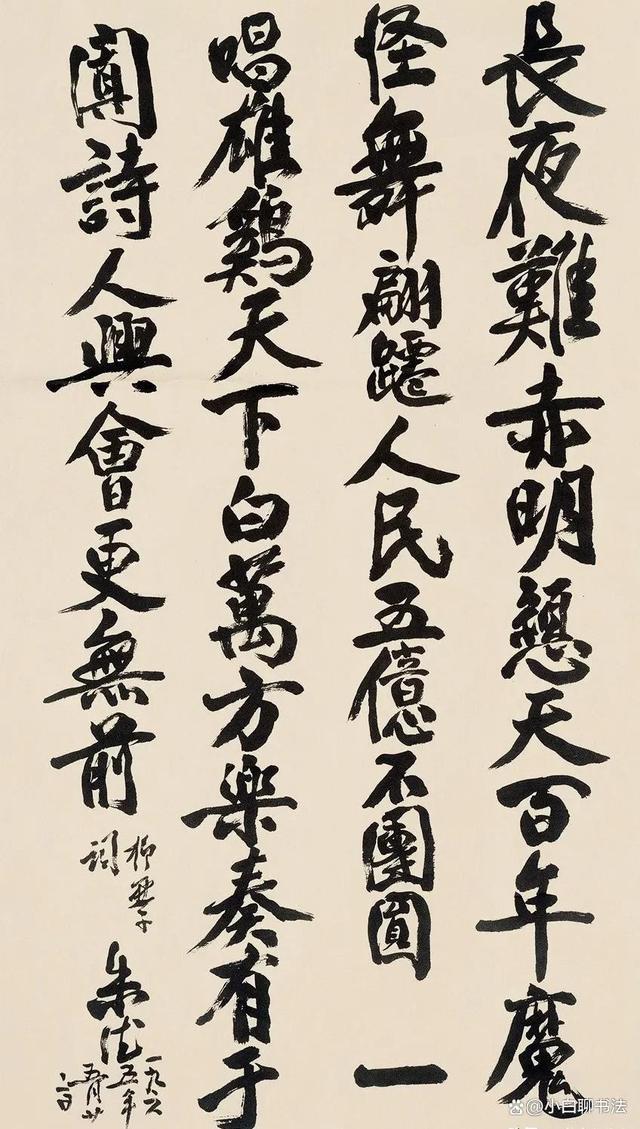 長夜難赤明懸天百年魔
怪舞翩躚人民五億不團圓一
唱雄鷄天下白萬方樂奏有于
闐詩人興會更無前
柳亞子
詞
朱德
一九六
五年
五月廿
小白聊书法